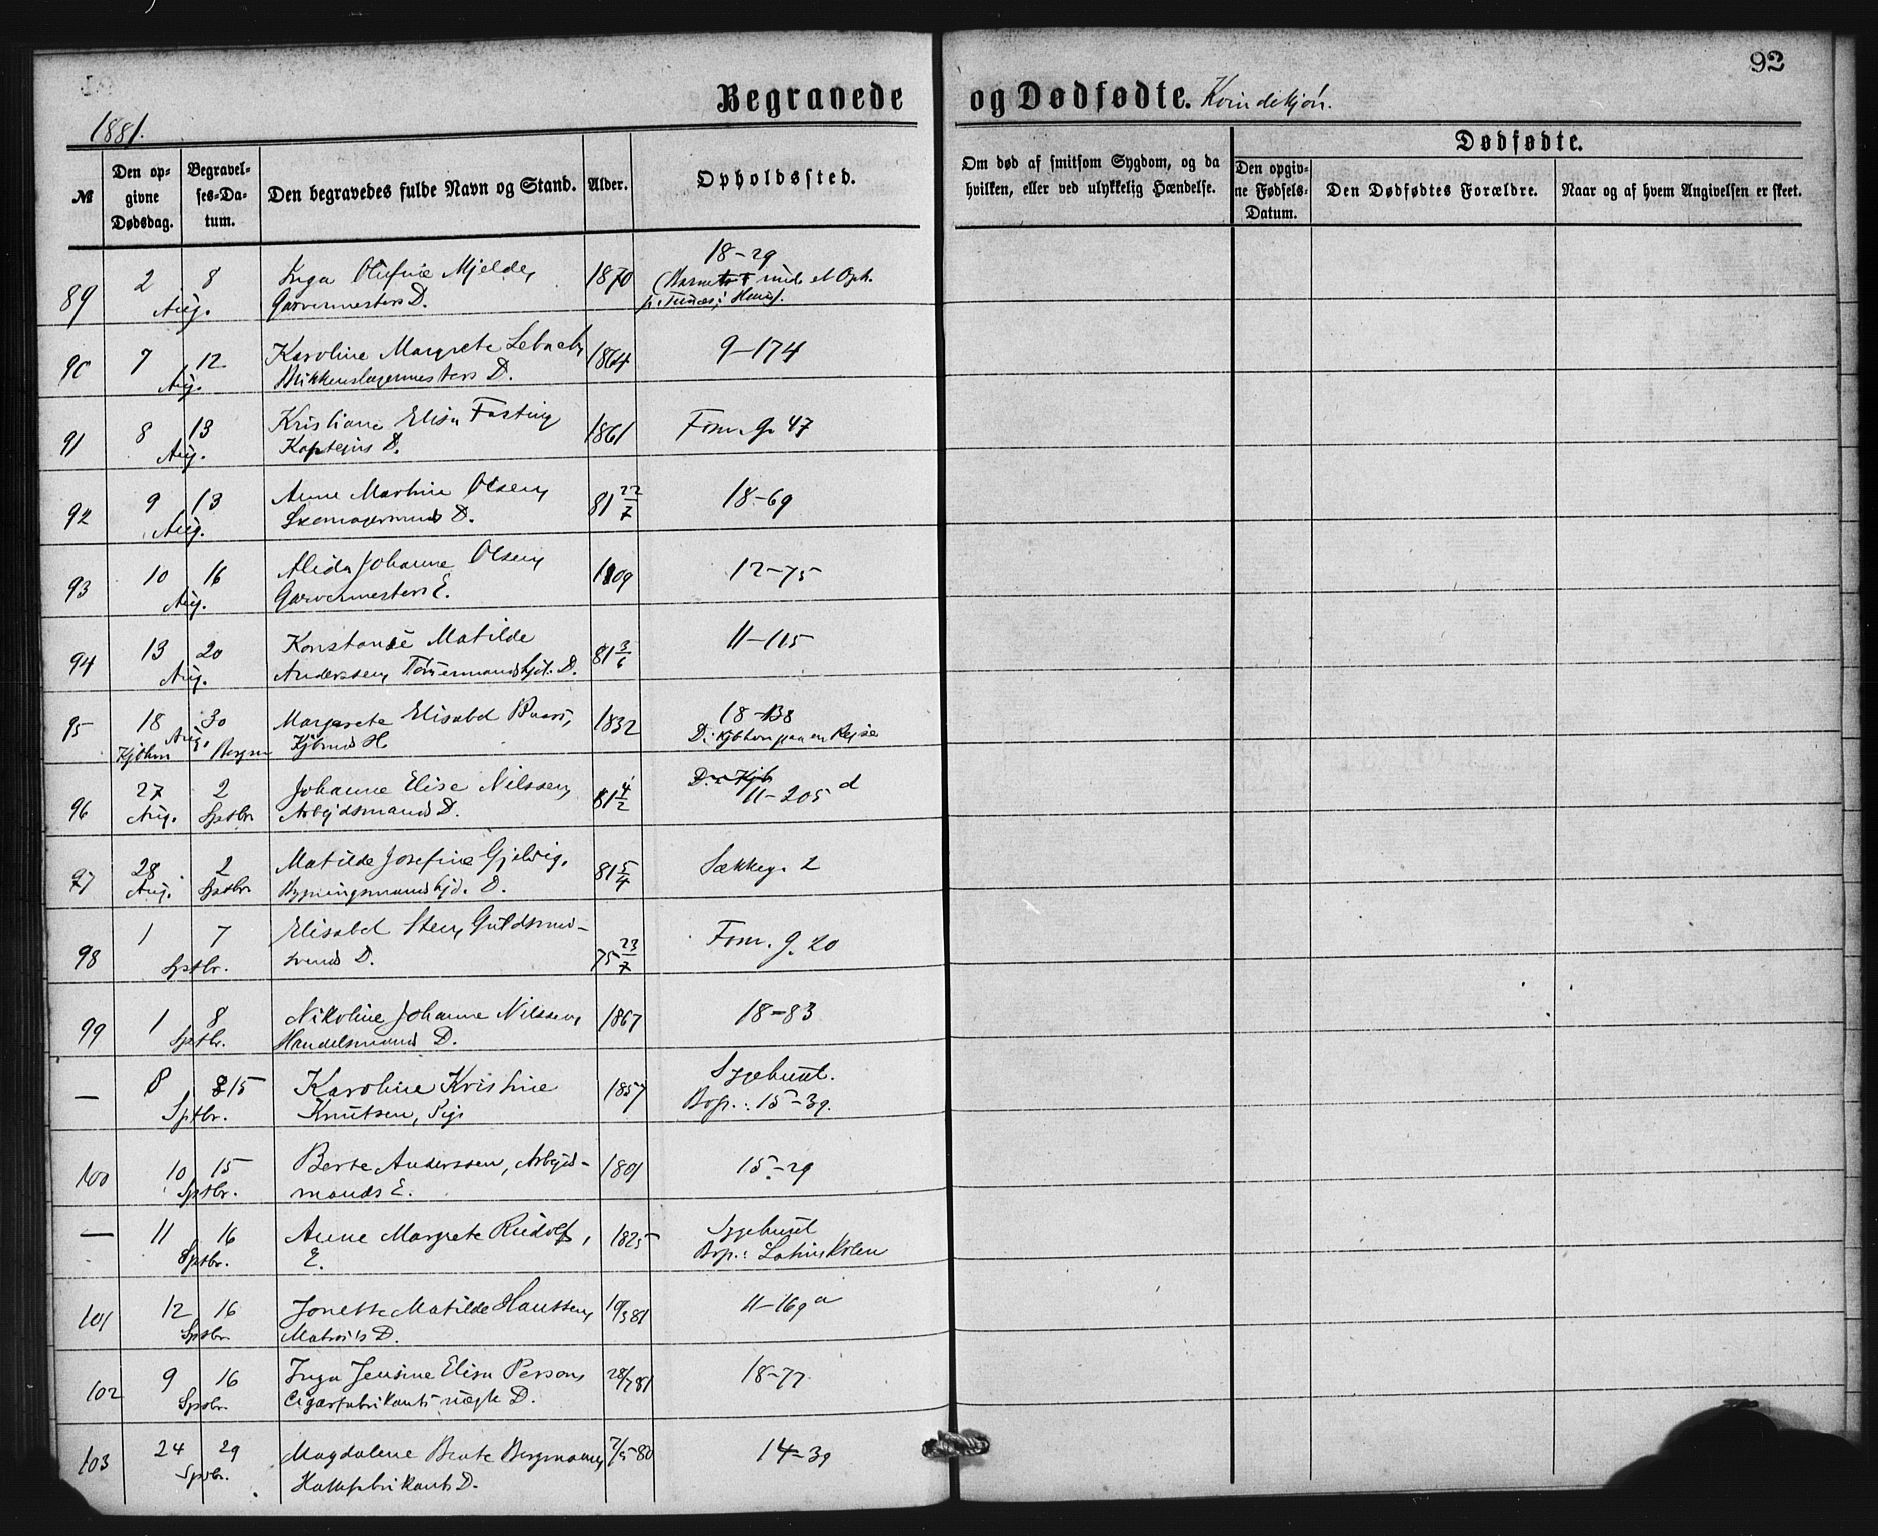 92
Begravede og Dødfødte. Kvindekjøn.
1881.
№
Den opgivne Dødsdag.
Begravelses-Datum.
Den begravedes fulde Navn og Stand.
Alder.
Opholdssted.
Om død af smitsom Sygdom, og da hvilken, eller ved ulykkelig Hændelse.
Dødfødte.
Den opgivne Fødsels-Datum.
Den Dødfødtes Forældre.
Naar og af hvem Angivelsen er skeet.
89 2 8 Inga Olufine Mjelde, 1870 18-29
Aug. Garvermesters D.
90 7 12 Karoline Margrete 1864 9-174
Aug. Blikkenslagermesters D.
91 8 13 Kristiane Elisa Fasting 1861 Fom. g. 47
Aug. Kapteins D.
92 9 13 Anne Martine Olsen, 81 22/7 18-69
Aug. D.
93 10 16 Alida Johanne Olsen, 1809 12-75
Aug. Garvermesters E.
94 13 20 Konstanse Matilde 81 3/6 11-115
Aug. Anderssen, Tømermandshjd. D.
95 18 30 Margrete Elisabet 1832 18-138
Kjbhvn Aug. Bergen Kjbmds H. D. i Kjbhvn paa en Rejse
96 27 2 Johanne Elise Nilssen, 81 4/2 11-205 d
Aug. Sptbr. Arbejdsmands D.
97 28 2 Matilde Josefine Gjelvig, 81 5/4 Sækkeg. 2
Aug. Sptbr. Bygningsmandshjd. D.
98 1 7 Elisabet Sten, Guldsmed- 75 23/7 Fom. g. 20
Sptbr. svends D.
99 1 8 Nikoline Johanne Nilssen, 1867 18-83
Sptbr. Handelsmands D.
— 8 15 Karoline Kristine 1857 Sygehuset.
Sptbr. Knutsen, Pige Bop.: 15-39.
100 10 15 Berte Anderssen, Arbejds- 1801 15-29
Sptbr. mands E.
— 11 16 Anne Margrete Rudolf, 1825 Sygehuset
Sptbr. E. Bop.: Latinskolen
101 12 16 Jonette Matilde Hanssen, 19/3 81 11-169 a
Sptbr. Matros's D.
102 9 16 Inga Jensine Elisa Person, 28/7 81 18-77
Sptbr. Cigarfabrikants uægte D.
103 24 29 Magdalene Beate Bergmann, 7/5 80 14-39
Sptbr. D.